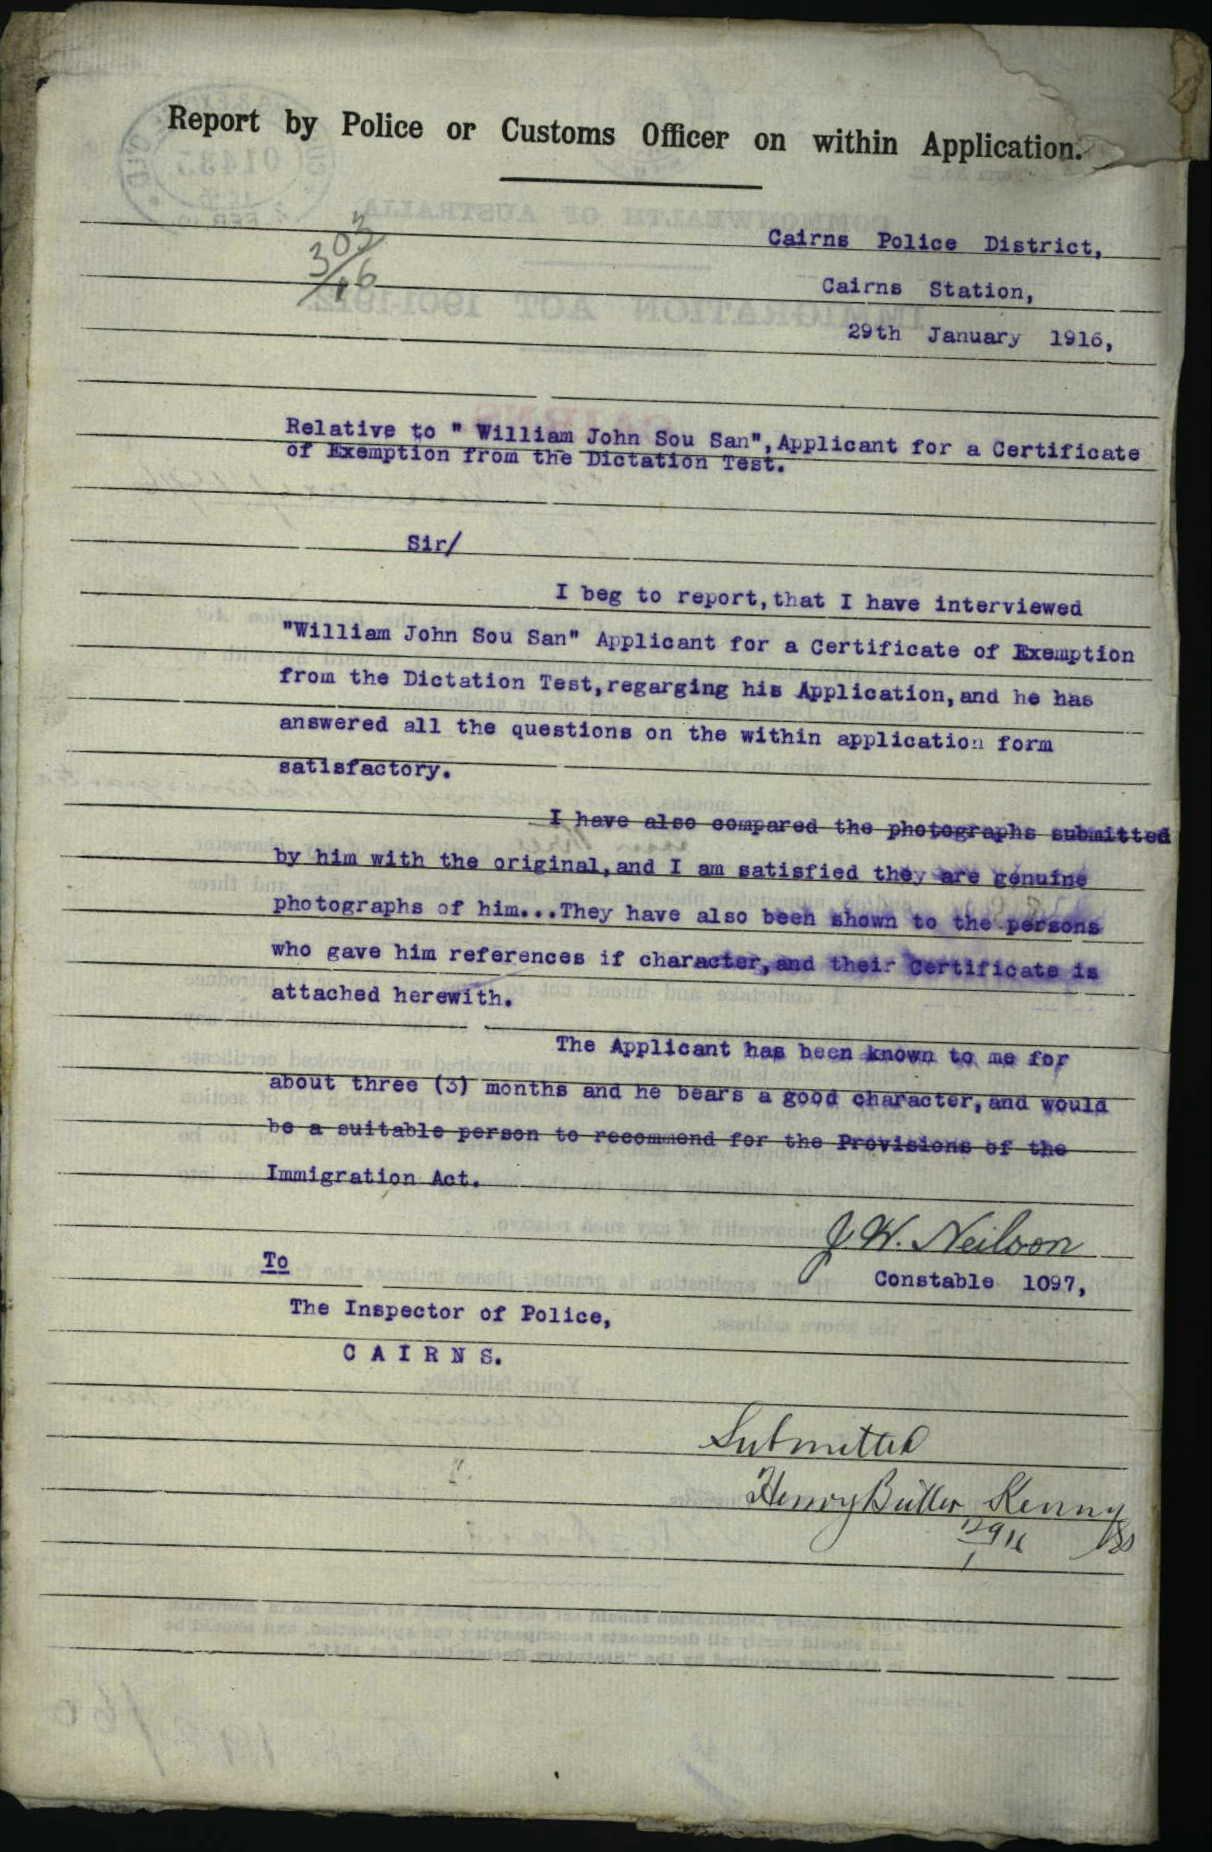 Report by Police or Customs Officer on within Application.
303/16
Cairns Police District,
Cairns Station,
29th January 1916,
Relative to " William John Sou San", Applicant for a Certificate
of Exemption from the Dictation Test.
Sir/
I beg to report, that I have interviewed
"William John Sou San" Applicant for a Certificate of Exemption
from the Dictation Test, regarging his Application, and he has
answered all the questions on the within application form
satisfactory.
I have also compared the photographs submitted
by him with the original, and I am satisfied they are genuine
photographs of him...They have also been shown to the persons
who gave him references if character, and their Certificate is
attached herewith.
The Applicant has been known to me for
about three (3) months and he bears a good character, and would
be a suitable person to recommend for the Provisions of the
Immigration Act.
J. W. Neilson
Constable 1097,
To
The Inspector of Police,
C A I R N S.
Submitted
Henry Butler Kenny
29/1/16